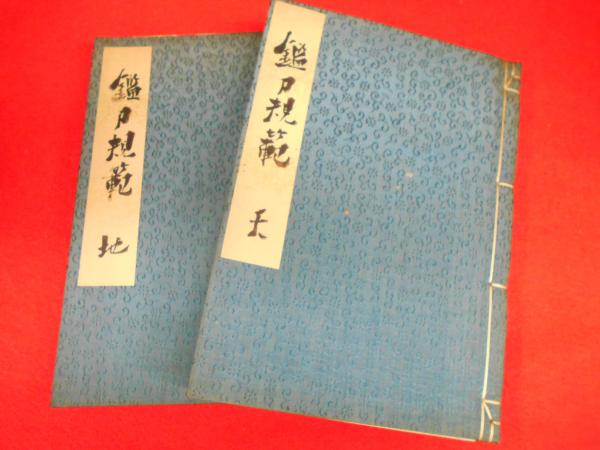 鑑刀規範 天
鑑刀規範 地